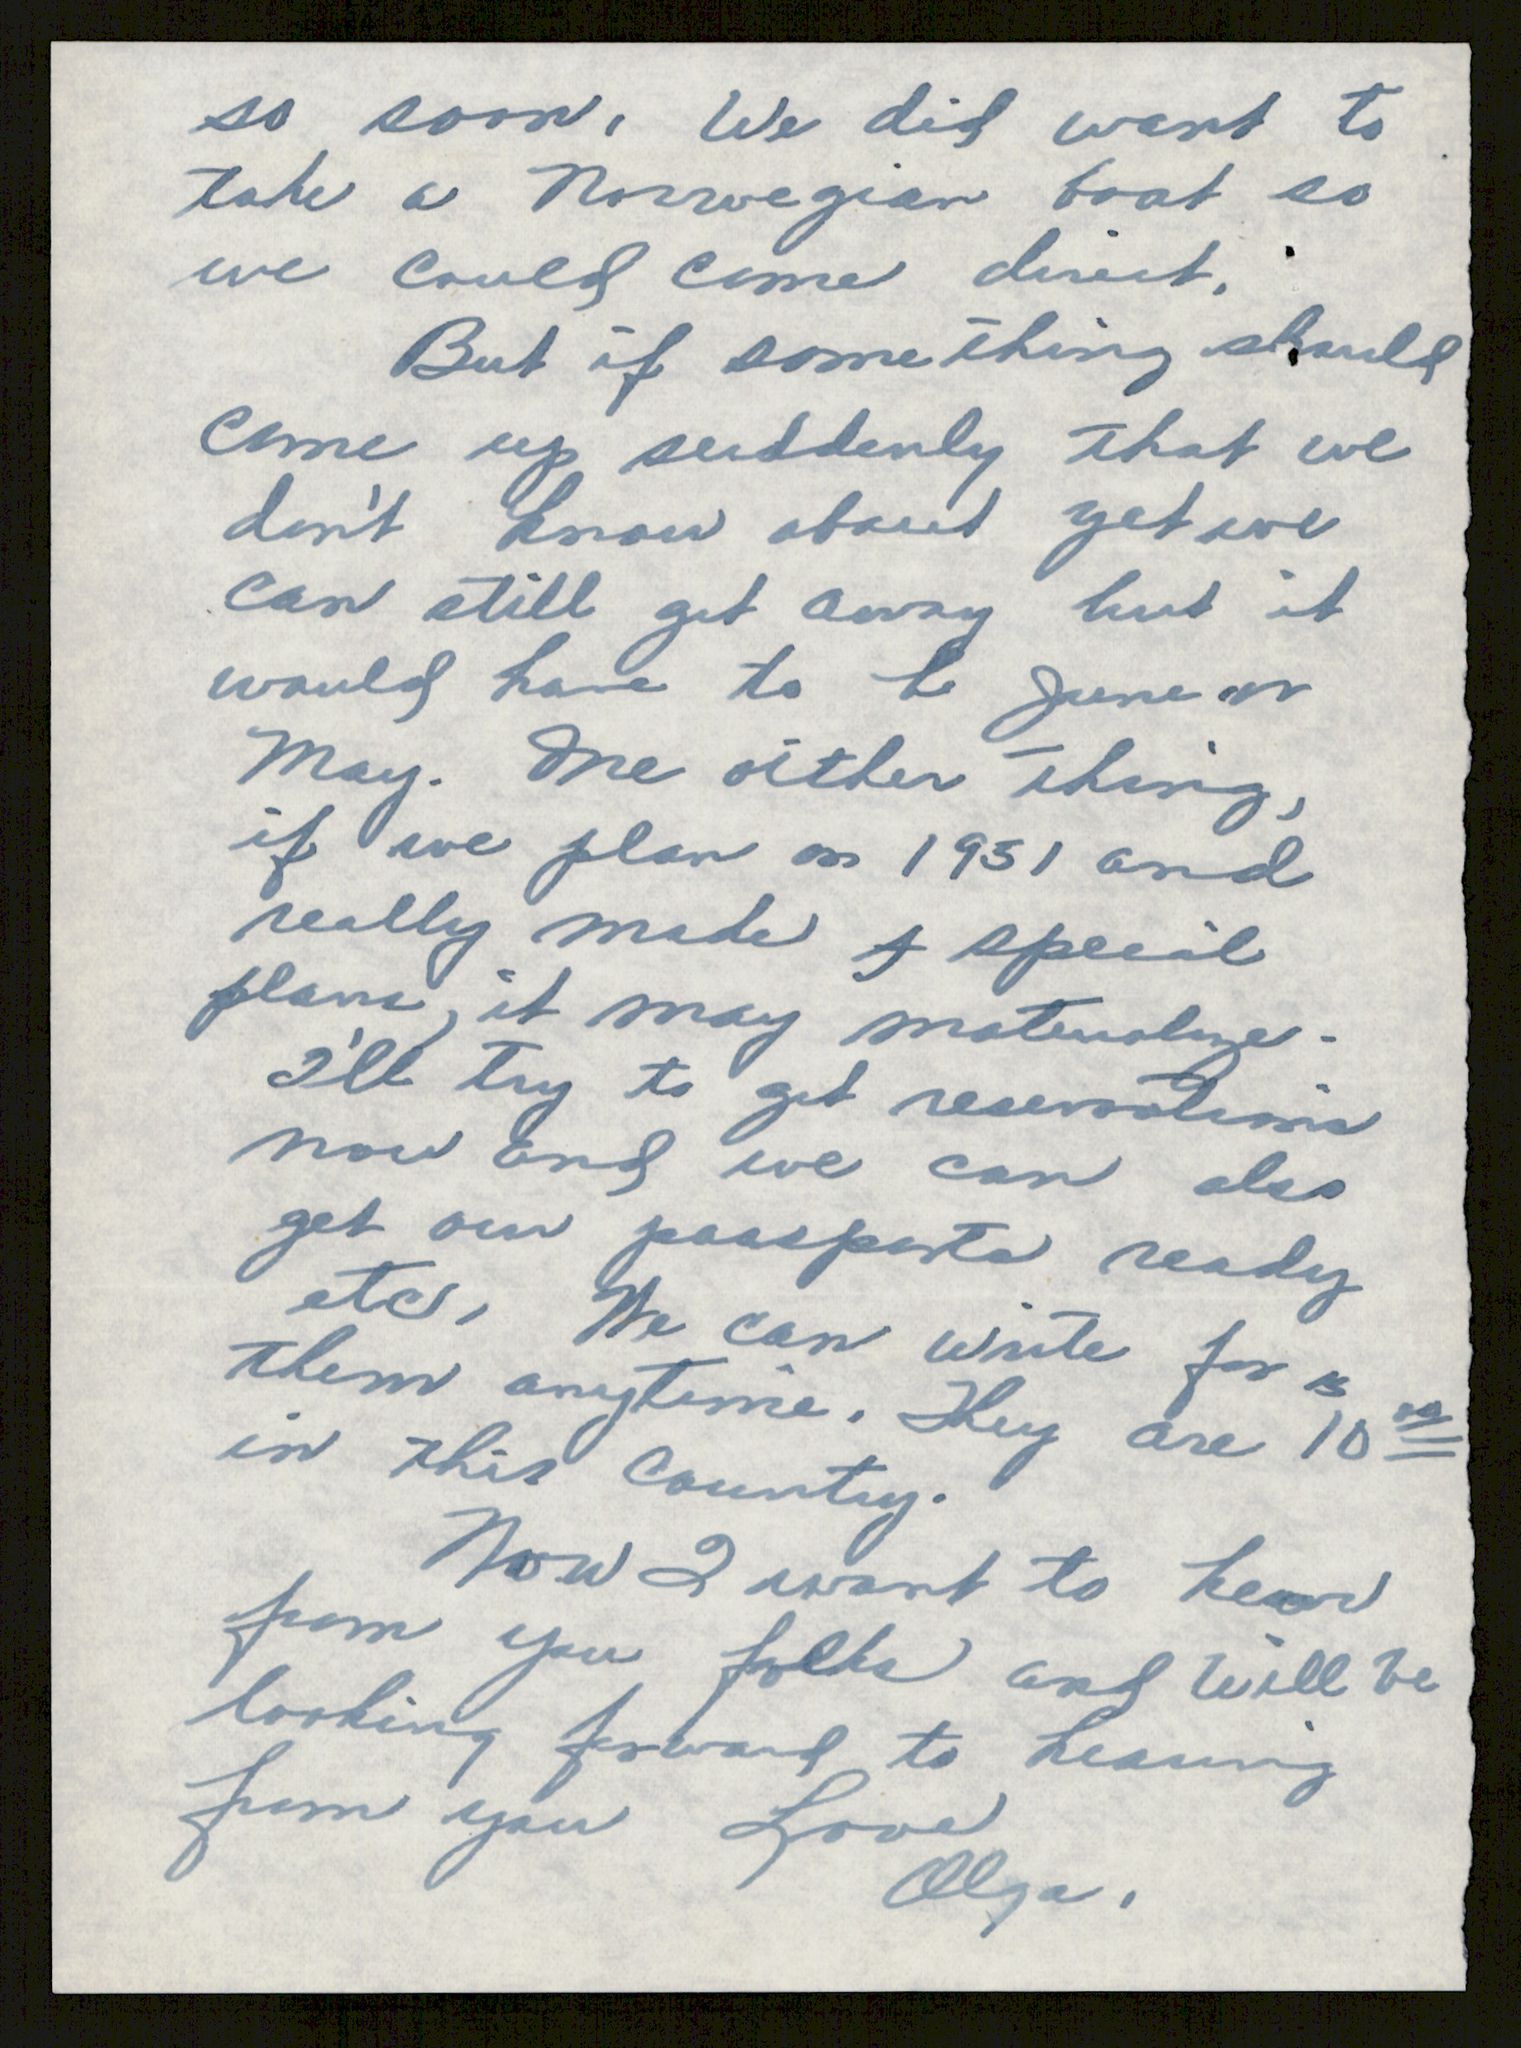 so soon. We did want to
take a Norwegian boat so
we could come direct.
But if something should
come up suddenly that we
don't know about yet we
can still get away but it
would have to be June or
May. One other thing,
if we plan on 1951 and
really made special
plans, it may materialize.
I'll try to get reservations
now and we can also
get our passports ready
etc. We can write for
them anytime. They are 10 00
in this country.
Now I want to hear
from you folks and will be
looking forward to hearing
from you Love
Olga.